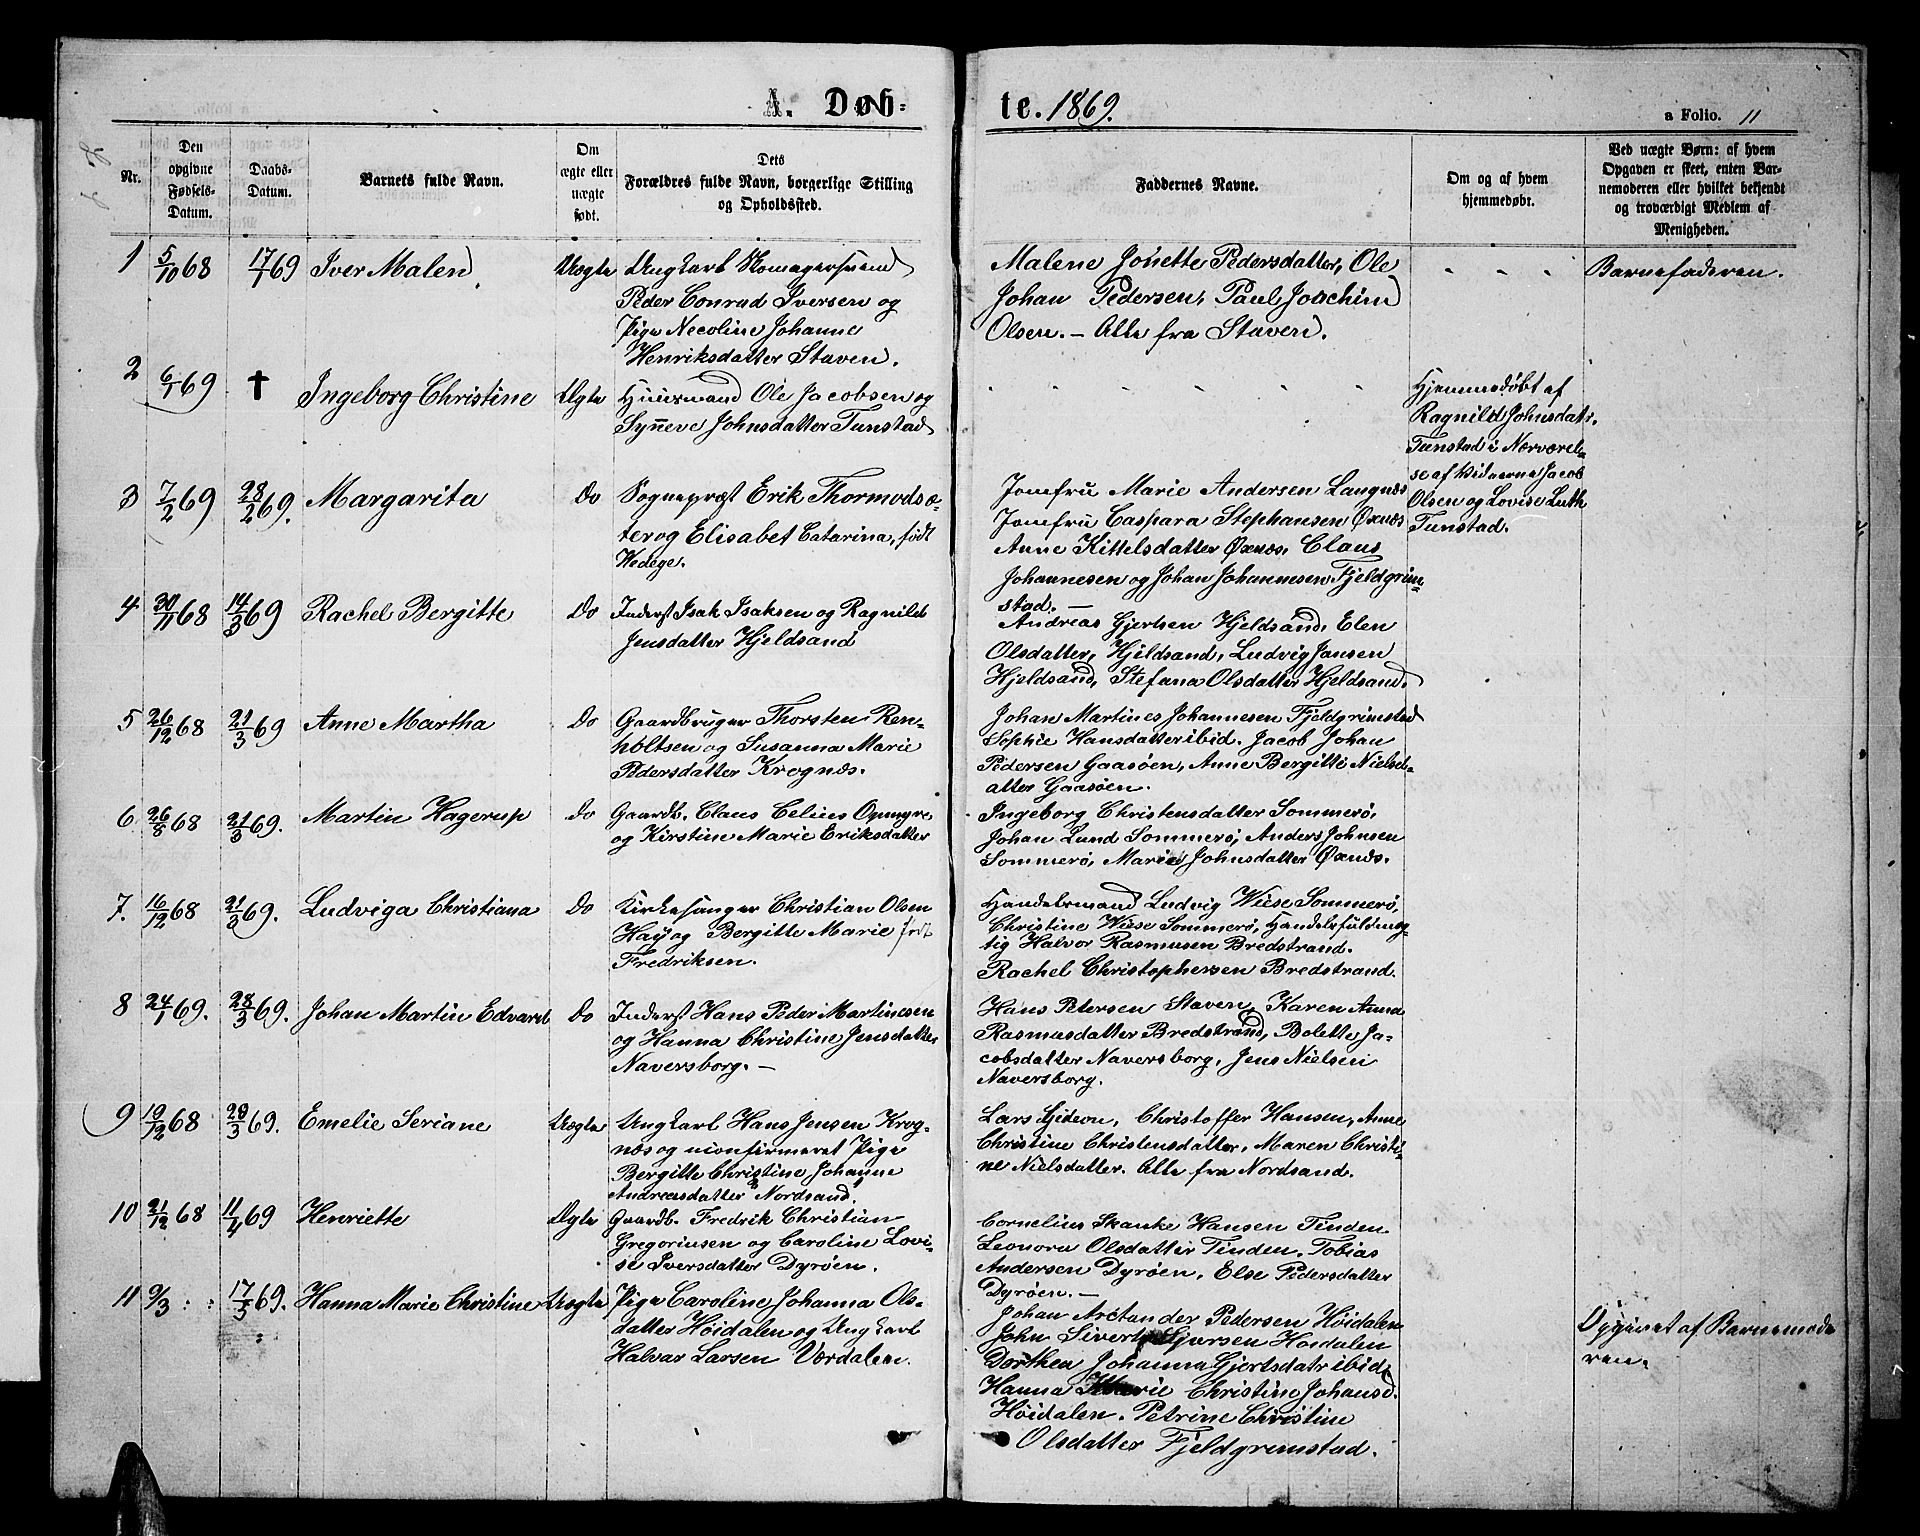 A. Døb=
te. 1869.
a Folio. 11
Nr.
Den opgivne Fødsels-Datum.
Daabs-Datum.
Barnets fulde Navn.
Om ægte eller uægte født.
Dets Forældres fulde Navn, borgerlige Stilling og Opholdssted.
Faddernes Navne.
Om og af hvem hjemmedøbt.
Ved uægte Børn: af hvem Opgaven er skeet, enten Barnemoderen eller hvilket bekjendt og troværdigt Medlem af Menigheden.
1 5/10 68 17/1 69 Iver Malen Uægte Ungkarl Komagersvend
Peder Conrad Iversen og
Pige Necoline Johanne
Henriksdatter Staven.
Malene Jonette Pedersdatter, Ole
Johan Pedersen, Paul Joachim
Olsen. – Alle fra Staven.
Barnefaderen.
2 6/1 69 † Ingeborg Christine Ægte Huusmand Ole Jacobsen og
Synneve Johnsdatter Tunstad
Hjemmedøbt af
Ragnild Johnsdatr.
Tunstad i Nærværel-
se af Vidnerne Jacob
Olsen og Lovise Luth
Tunstad.
3 7/2 69 28/2 69. Margarita do Sognepræst Erik Thormodsæ-
ter og Elisabet Catarina, født
Wedege.
Jomfru Marie Andersen Langnæs
Jomfru Caspara Stephansen Øxnæs
Anne Kittelsdatter Øxnæs, Claus
Johannesen og Johan Johannesen Fjeldgrim-
stad. –
4 30/11 68 14/3 69 Rachel Bergitte do Inderst Isak Isaksen og Ragnild
Jensdatter Hjeldsand
Andreas Gjertsen Hjeldsand, Elen
Olsdatter, Hjeldsand, Ludvig Jansen
Hjeldsand, Stefana Olsdatter Hjeldsand.
5 26/12 68 21/3 69 Anne Martha do Gaardbruger Thorsten Ren-
holtsen og Susanna Marie
Pedersdatter Krognæs.
Johan Martines Johannesen Fjeldgrimstad
Sophie Hansdatter ibid. Jacob Johan
Pedersen Gaasøen, Anne Bergitte Nielsd-
atter Gaasøen.
6 26/8 68 21/3 69. Martin Hagerup do Gaardb. Claus Celius Opmyre
og Kirstine Marie Eriksdatter
Ingeborg Christensdatter Sommerø,
Johan Lund Sommerø, Anders Johnsen
Sommerø, Marie Johnsdatter Øxnæs.
7. 16/12 68 21/3 69. Ludviga Christiana do Kirkesanger Christian Olsen
Hay og Bergitte Marie født
Fredriksen.
Handelsmand Ludvig Wiese Sommerø,
Christine Wiese Sommerø, Handelsfuldmæg-
tig Halvor Rasmusen Bredstrand.
Rachel Christophersen Bredstrand.
8 24/1 69. 28/3 69. Johan Martin Edvard do Inderst Hans Peder Martinesen
og Hanna Christine Jensdatter
Naversborg. –
Hans Petersen Staven, Karen Anna
Rasmusdatter Bredstrand, Bolette Ja-
cobsdatter Naversborg, Jens Nielsen
Naversborg.
9 19/12 68 28/3 69. Emelie Seriane Uægte Ungkarl Hans Jensen Krog-
næs og uconfirmeret Pige
Bergitte Christine Johanne
Andreasdatter Nordsand.
Lars Gideon, Christoffer Hansen, Anne
Christine Christensdatter, Maren Christi-
ne Nielsdatter. Alle fra Nordsand.
10 21/12 68 11/4 69 Henriette Ægte Gaardb. Fredrik Christian
Gregoriusen og Caroline Lovi-
se Iversdatter Dyrøen.
Cornelius Skanke Hansen Tinden
Leonora Olsdatter Tinden. Tobias
Andersen Dyrøen, Else Pedersdatter
Dyrøen. –
11 9/3 : : 17/5 69. Hanna Marie Christine Uægte Pige Caroline Johanna Ols-
datter Høidalen og Ungkarl
Halvar Larsen Værdalen.
Johan Arctander Pedersen Høidalen
John Sivert Sjursen Høidalen
Dorthea Johanna Gjertsdatr ibid,
Hanna Marie Christine Johansd.
Høidalen. Petrine Christine
Olsdatter Fjeldgrimstad.
Opgivet af Barnemode
ren.